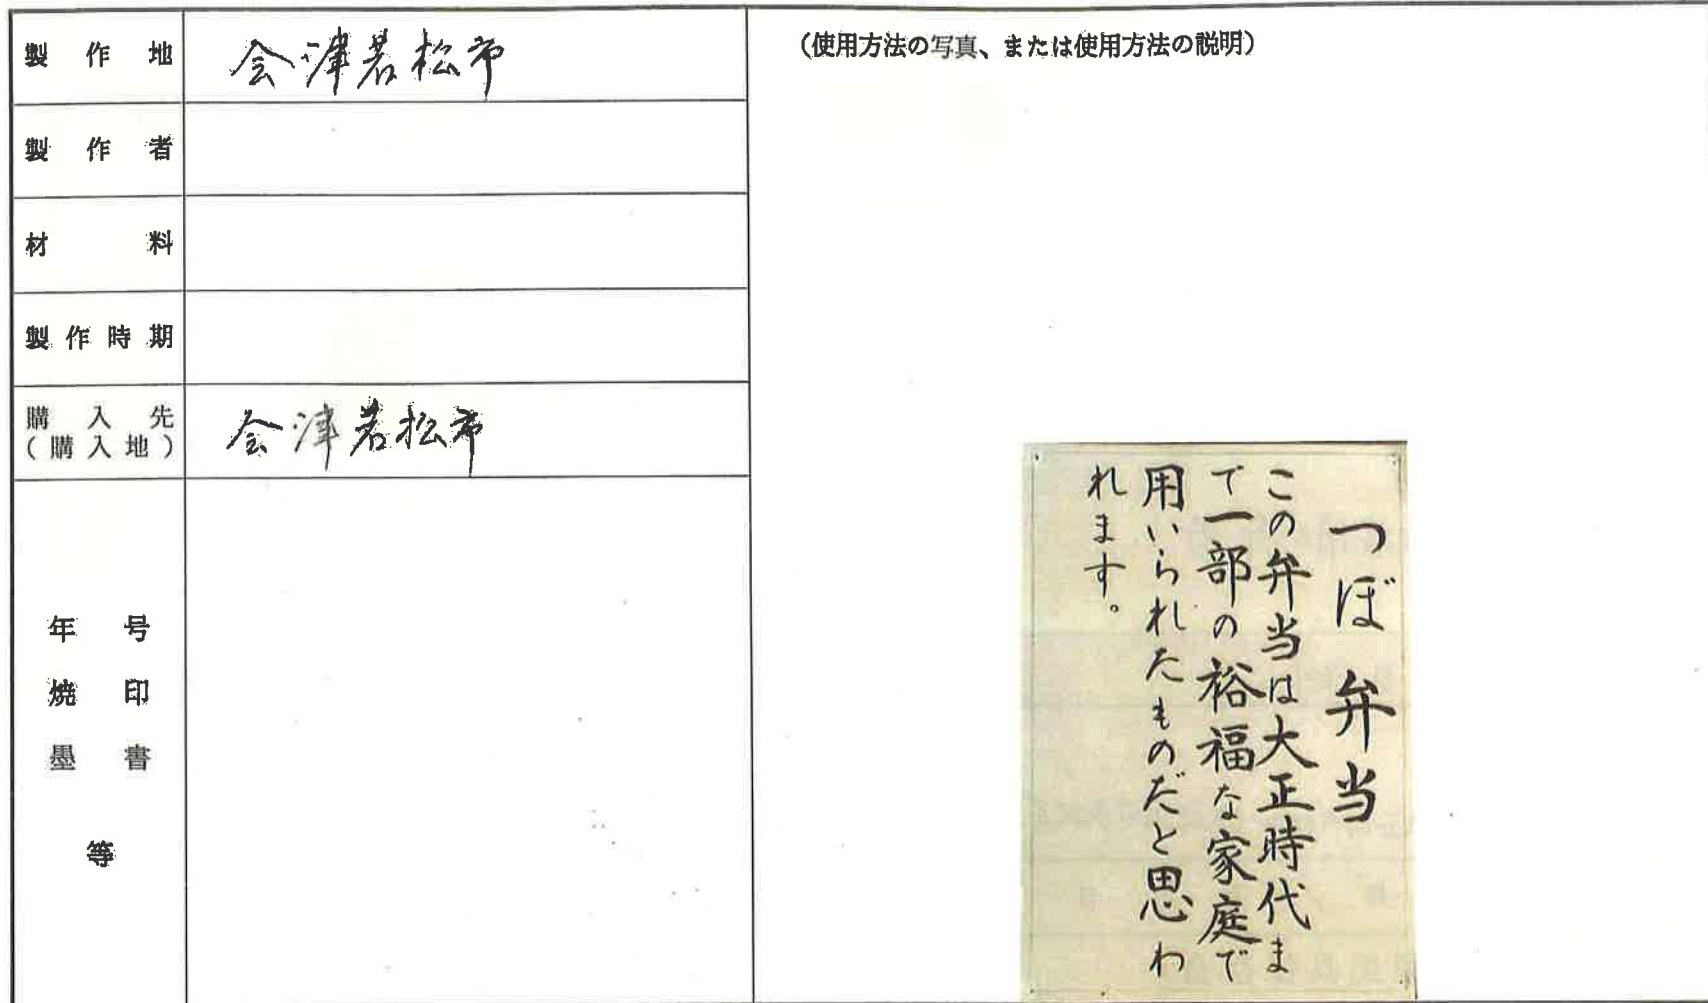 製作地 会津若松市
製作者
材料
製作時期
購入先
(購入地) 会津若松市
年号
焼印
墨書
等
(使用方法の写真、または使用方法の説明)
つぼ弁当
この弁当は大正時代ま
で一部の裕福な家庭で
用いられたものだと思わ
れます。